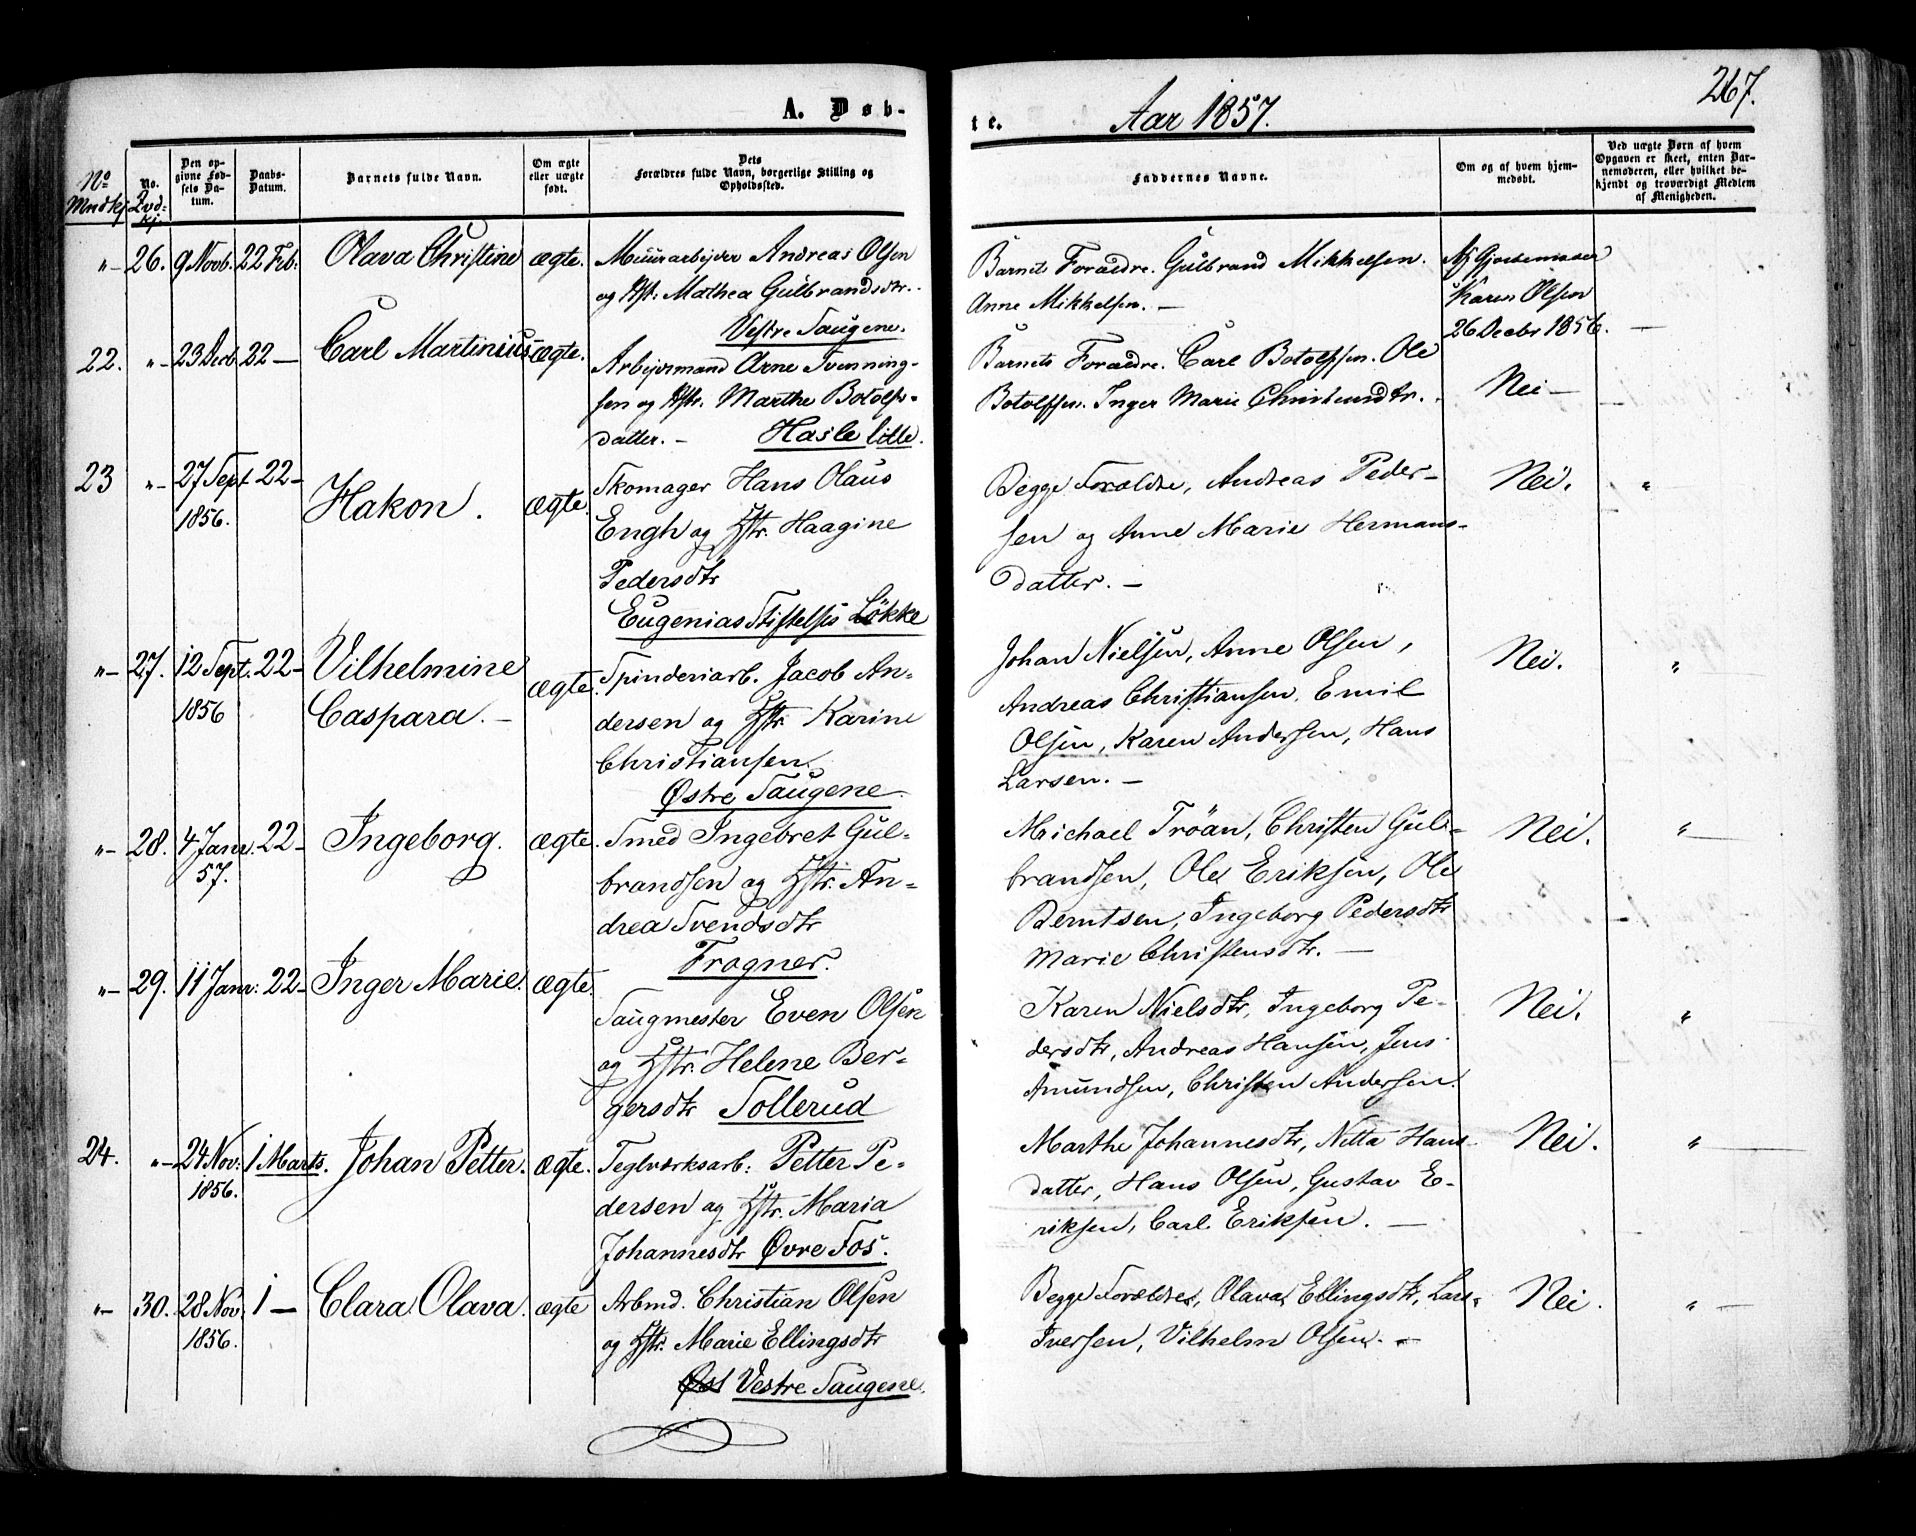 A. Døb-
te.
Aar 1857.
267.
No Mndkj
No. Qvd-kj.
Den opgivne Fødsels Datum.
Daabs-Datum.
Barnets fulde Navn.
Om ægte eller uægte født.
Dets Forældres fulde Navn, borgerlige Stilling og Opholdssted.
Faddernes Navne.
Om og af hvem hjemmedøbt.
Ved uægte Børn af hvem Opgaven er skeet, enten Barnemoderen, eller hvilket bekjendt og troværdigt Medlem af Menigheden.
"- 26. 9 Novb. 22 Feb: Olava Christine ægte.
Muurarbejder Andreas Olsen
og Hst: Mathea Gulbrandsdtr.
Vestre Saugene.
Barnets Forældre. Gulbrand Mikkelsen.
Anne Mikkelsen. —
Af Gjordemoder
Karen Olsen
26 Decbr 1856. —
22. "- 23 Decb. 22 — Carl Martinius ægte.
Arbejdsmand Arne Svenning-
sen og Hstr. Marthe Botolfs-
datter. — Hasle lille.
Barnets Forældre. Carl Botolfsen. Ole
Botolfsen. Inger Marie
Nei —
23 "- 27 Sept 22 -
1856. Hakon. ægte.
Skomager Hans Olaus
Engh og Hstr. Haagine
Pedersdtr
Eugenias Stiftelses Løkke
Begge Forældre, Andreas Peder-
sen og Anne Marie Hermans-
datter. —
Nei. "
"- 27. 12 Sept. 22 -
1856 Vilhelmine
Caspara. — ægte.
Spinderiarb. Jacob An-
dersen og Hstr Karine
Christiansen
Østre Saugene.
Johan Nielsen, Anne Olsen,
Andreas Christiansen, Emil
Olsen, Karen Andersen, Hans
Larsen. —
Nei. "
"- 28. 4 Janr. 22 -
57. Ingeborg. ægte.
Smed Ingebret Gul-
brandsen og Hstr. An-
drea Svendsdtr
Frogner.
Michael Tröan, Christen Gul-
brandsen, Ole Eriksen, Ole
Berntsen, Ingeborg Pedersdtr
Marie Christensdtr. —
Nei. "
"- 29. 11 Janr: 22 - Inger Marie. ægte.
Saugmester Even Olsen
og Hstr. Helene Ber-
gersdtr Sollerud
Karen Nielsdtr, Ingeborg Pe-
dersdtr, Andreas Hansen, Jens
Amundsen, Christen Andersen.
Nei. "
24. "- 24 Nov: 1 Marts.
1856. Johan Petter. ægte.
Teglværksarb: Petter Pe-
dersen og Hstr. Maria
Johannesdtr Øvre Fos.
Marthe Johannesdtr, Netta Hans-
datter, Hans Olsen, Gustav E-
riksen, Carl Eriksen. —
Nei. "
"- 30. 28 Nov. 1 —
1856. Clara Olava. ægte
Arbmd. Christian Olsen
og Hstr. Marie Ellingsdtr
Øst Vestre Saugene.
Begge Forældre, Olava Ellingsdtr, Lars
Iversen, Vilhelm Olsen. —
Nei. "